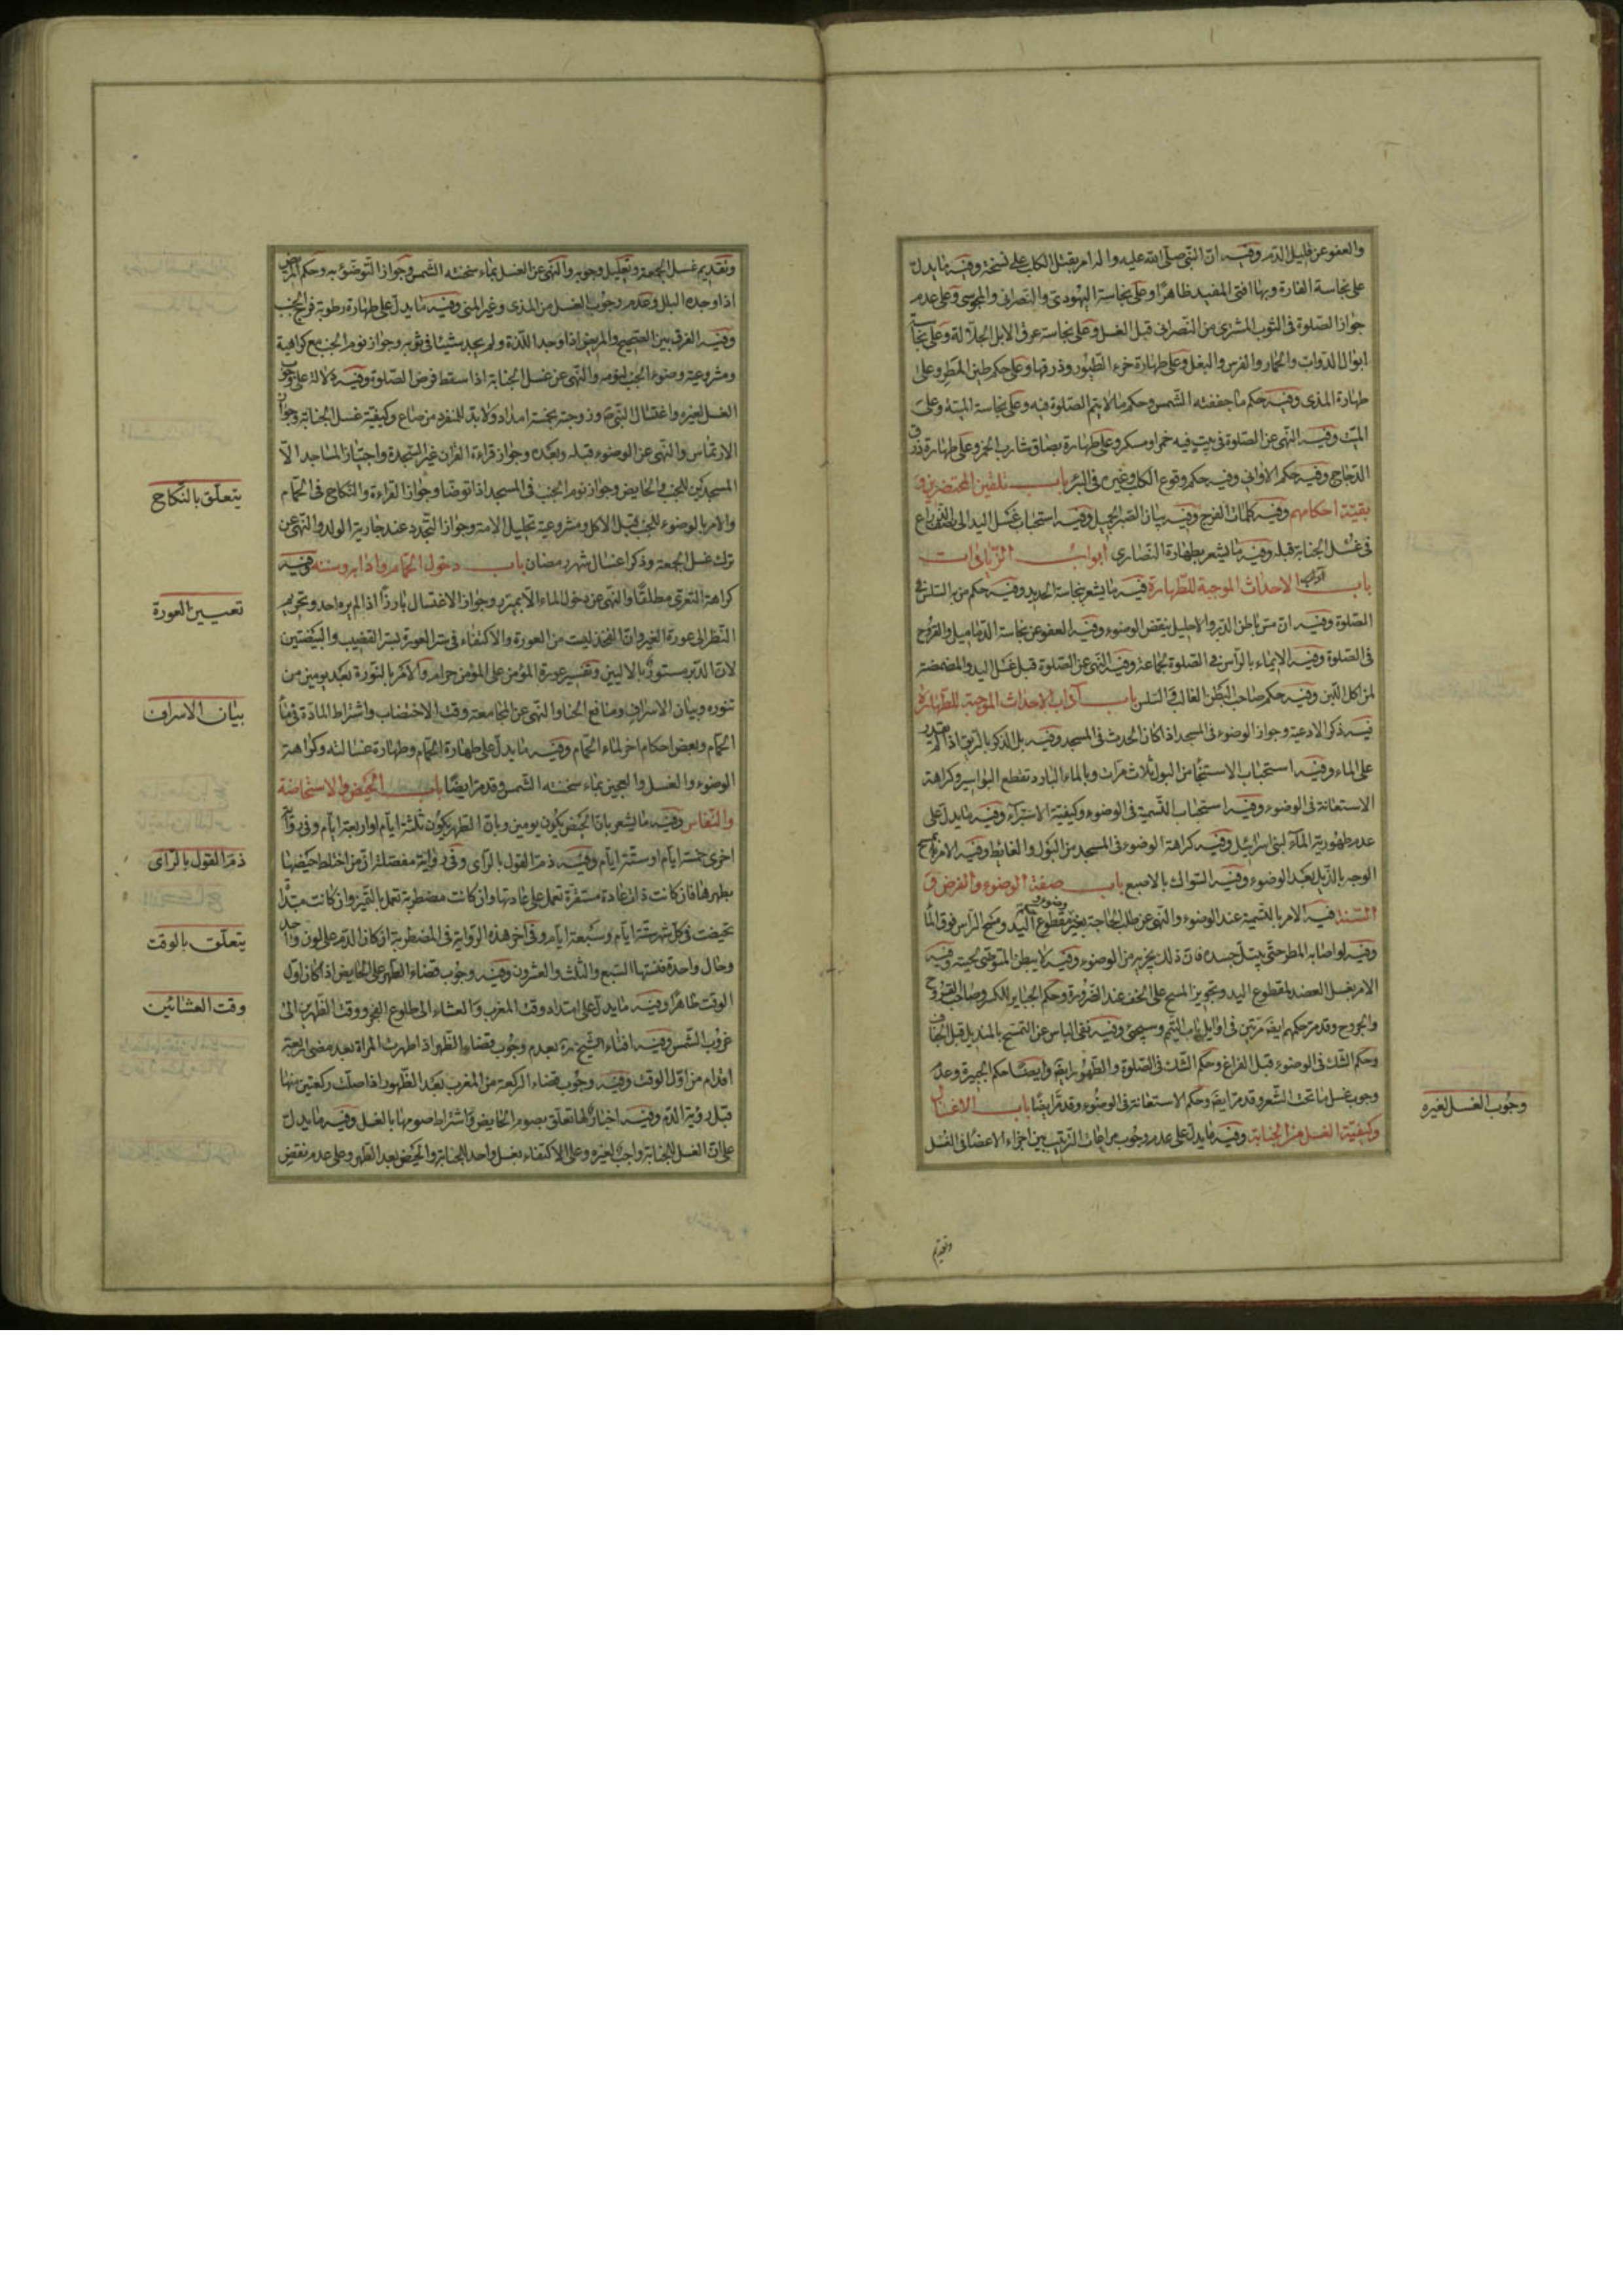 والعفو عن قليل الدم وفيه ان النبي صلى الله عليه واله امر بقتل الكلب على نسخة وفيه ما يدل
على نجاسة الفارة وبها افتى المفيد ظاهرا وعلى نجاسة اليهودي والنصراني والمجوسي وعلى عدم
جواز الصلوة في الثوب المشترى من النصراني قبل الغسل وعلى نجاسة عرق الابل الجلالة وعلى نجاسة
ابوال الدواب والحمار والفرس والبغل وعلى طهارة خرء الطيور وذرقها وعلى حكم طين المطر وعلى
طهارة المذي وفيه حكم ما جففته الشمس وحكم ما لا يتم الصلوة فيه وعلى نجاسة الميتة وعلى
الميت وفيه النهي عن الصلوة في بيت فيه خمر او مسكر وعلى طهارة بصاق شارب الخمر وعلى طهارة ذرق
الدجاج وفيه حكم الاواني وفيه حكم وقوع الكلب وغيره في البئر باب تلقين المحتضرين و
بقية احكامهم وفيه كلمات الفرج وفيه بيان الصبر الجميل وفيه استحباب غسل اليد الى نصف الذراع
في غسل الجنابة قبله وفيه ما يشعر بطهارة النصارى ابواب الزيادات
باب الاحداث الموجبة للطهارة فيه ما يشعر بنجاسة الحديد وفيه حكم من به السلس في
الصلوة وفيه ان مس باطن الدبر والاحليل ينقض الوضوء وفيه العفو عن نجاسة الدماميل والقروح
في الصلوة وفيه الايماء بالراس في الصلوة جماعة وفيه النهي عن الصلوة قبل غسل اليد والمضمضة
لمن اكل اللبن وفيه حكم صاحب البطن الغالب والسلس باب آداب الاحداث الموجبة للطهارة
فيه ذكر الادعية وجواز الوضوء في المسجد اذا كان الحدث في المسجد وفيه بل الذكر بالريق اذا لم يقدر
على الماء وفيه استحباب الاستنجا من البول ثلاث مرات وبالماء البارد تقطع البواسير وكراهة
الاستعانة في الوضوء وفيه استحباب التسمية في الوضوء وكيفية الاستبراء وفيه ما يدل على
عدم طهورية الماء لبني اسرائيل وفيه كراهة الوضوء في المسجد من البول والغايط وفيه الامر بمسح
الوجه بالذيل بعد الوضوء وفيه السواك بالاصبع باب صفة الوضوء والفرض و
السنة فيه الامر بالتسمية عند الوضوء والنهي عن طلب الحاجة بغير وضوء وفيه حكم مقطوع اليد ومسح الراس فوق الحنا
وفيه لو اصابه المطر حتى يبتل جسده فان ذلك يجزيه من الوضوء وفيه لا يبطن المتوضي لحيته وفيه
الامر بغسل العضد لمقطوع اليد وتجويز المسح على الخف عند الضرورة وحكم الجباير للكسر وصاحب القروح
والجروح وقد مر حكمهم ايضا مرتين في اوايل باب التيمم وسيجيئ وفيه نفي الباس عن التمسح بالمنديل قبل الجفاف
وحكم الشك في الوضوء قبل الفراغ وحكم الشك في الصلوة والطهور ايضا وايضا حكم الجبيرة وعدم
وجوب غسل ما تحت الشعر وقد مر ايضا وحكم الاستعانة في الوضوء وقد مر ايضا باب الاغسال
وكيفية الغسل من الجنابة وفيه ما يدل على عدم وجوب مراعات الترتيب بين اجزاء الاعضا في الغسل
وجوب الغسل لغيره
وتقديم
وتقديم غسل الجمعة وتعليل وجوبه والنهي عن الغسل بماء سخنته الشمس وجواز التوضؤ به وحكم المريض
اذا وجد البلل وعدم وجوب الغسل من المذي وغير المني وفيه ما يدل على طهارة رطوبة فرج الجنب
وفيه الفرق بين الصحيح والمريض اذا وجد اللذة ولم يجد شيئا في ثوبه وجواز نوم الجنب مع كراهية
ومشروعية وضوء الجنب لنومه والنهي عن غسل الجنابة اذا سقط فرض الصلوة وفيه دلالة على وجوب
الغسل لغيره واغتسال النبي ص وزوجته بخمسة امداد ولا بد للمنفرد من صاع وكيفية غسل الجنابة وجواز
الارتماس والنهي عن الوضوء قبله وبعده وجواز قراءة القران غير السجدة واجتياز المساجد الا
المسجدين للجنب والحايض وجواز نوم الجنب في المسجد اذا توضا وجواز القراءة والنكاح في الحمام
والامر بالوضوء للجنب قبل الاكل ومشروعية تحليل الامة وجواز التجرد عند جارية الولد والنهي عن
ترك غسل الجمعة وذكر اغسال شهر رمضان باب دخول الحمام وادابه وسننه وفيه
كراهة التعري مطلقا والنهي عن دخول الماء الا بميزر وجواز الاغتسال بارزا اذا لم يره احد وتحريم
النظر الى عورة الغير وان الفخذ ليست من العورة والاكتفاء في ستر العورة بستر القضيب والبيضتين
لان الدبر مستور بالاليين وتفسير عورة المؤمن على المؤمن حرام والامر بالنورة بعد يومين من
تنوره وبيان الاسراف ومنافع الحنا والنهي عن المجامعة وقت الاختضاب واشتراط المادة في ماء
الحمام وبعض احكام اخر لماء الحمام وفيه ما يدل على طهارة الحمام وطهارة غسالته وكراهة
الوضوء والغسل والعجين بماء سخنته الشمس وقد مر ايضا باب الحيض والاستحاضة
والنفاس وفيه ما يشعر بان الحيض يكون يومين وبان الطهر يكون ثلثة ايام او اربعة ايام وفي رواية
اخرى خمسة ايام او ستة ايام وفيه ذم القول بالرأى وفي رواية مفصلة ان من اختلط حيضها
بطهرها فان كانت ذات عادة مستقرة تعمل على عادتها وان كانت مضطربة تعمل بالتميز وان كانت مبتدأة
تحيضت في كل شهر ستة ايام وسبعة ايام وفي آخر هذه الرواية في المضطربة ان كان الدم على لون واحد
وحال واحدة فسنتها السبع والثلث والعشرون وفيه وجوب قضاء الطهر على الحايض اذا كان اول
الوقت طاهرا وفيه ما يدل على امتداد وقت المغرب والعشاء الى طلوع الفجر ووقت الظهرين الى
غروب الشمس وفيه افتاء الشيخ ره بعدم وجوب قضاء الظهر اذا طهرت المراة بعد مضي اربعة
اقدام من اول الوقت وفيه وجوب قضاء الركعة من المغرب بعد الطهور اذا صلت ركعتين منها
قبل رؤية الدم وفيه اخبار لها تعلق بصوم الحايض واشتراط صومها بالغسل وفيه ما يدل
على ان الغسل للجنابة واجب لغيره وعلى الاكتفاء بغسل واحد للجنابة والحيض بعد الطهر وعلى عدم نقض
يتعلق بالنكاح
تعيين العورة
بيان الاسراف
ذم القول بالرأى
يتعلق بالوقت
وقت العشائين